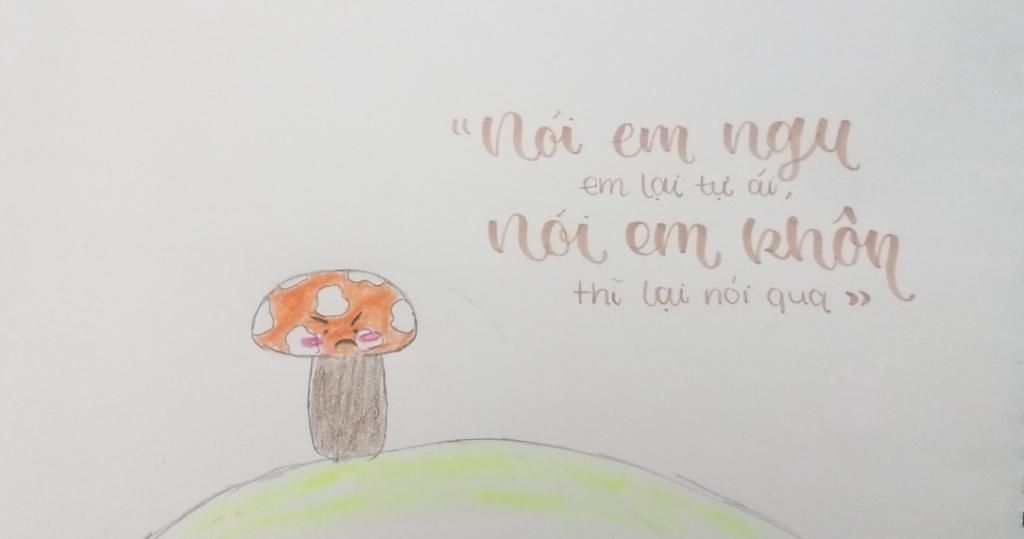 “Nói em ngu
em lại tự ái,
nói em khôn
thĩ lại nói qua”